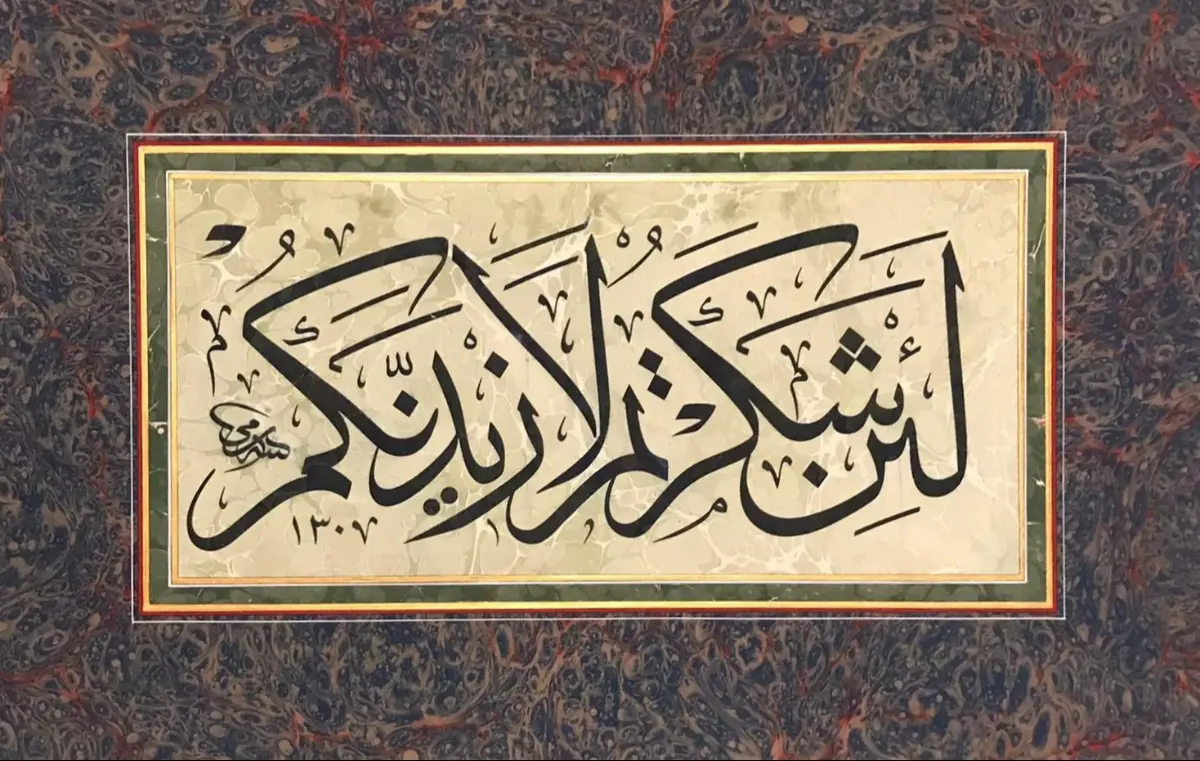 لَئِنْ شَكَرْتُمْ لَأَزِيدَنَّكُمْ
سامی
١٣٠٧